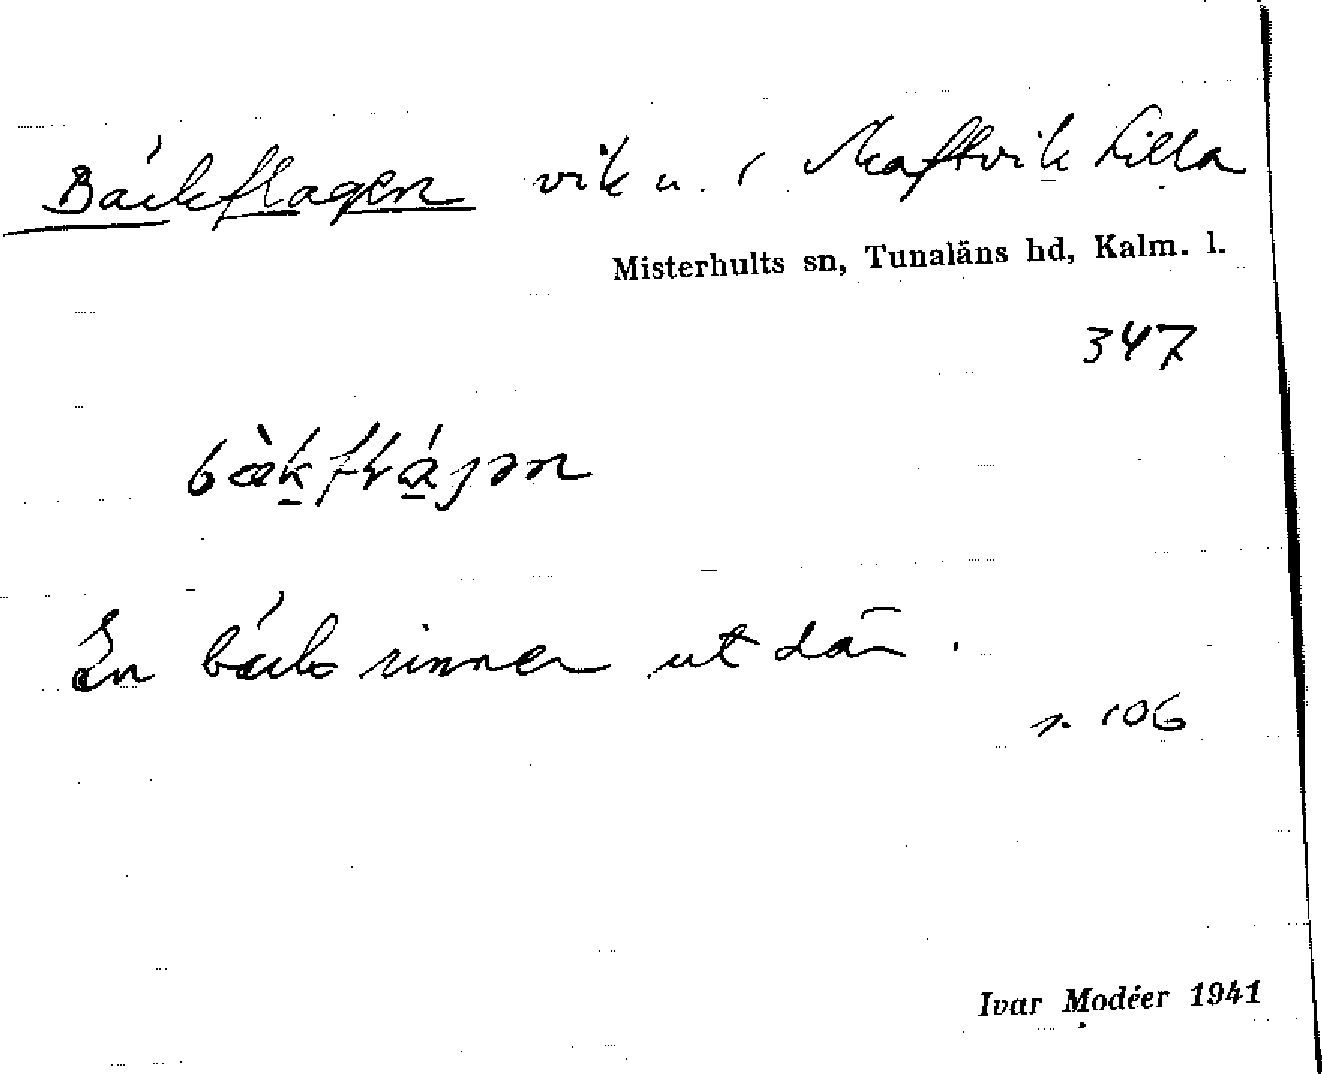 Bäckflagen vik u. 1 Skaftvik Lilla
Misterhults sn, Tunaläns hd, Kalm. l.
347
En bäck rinner ut där.
s. 106
Ivar Modéer 1941